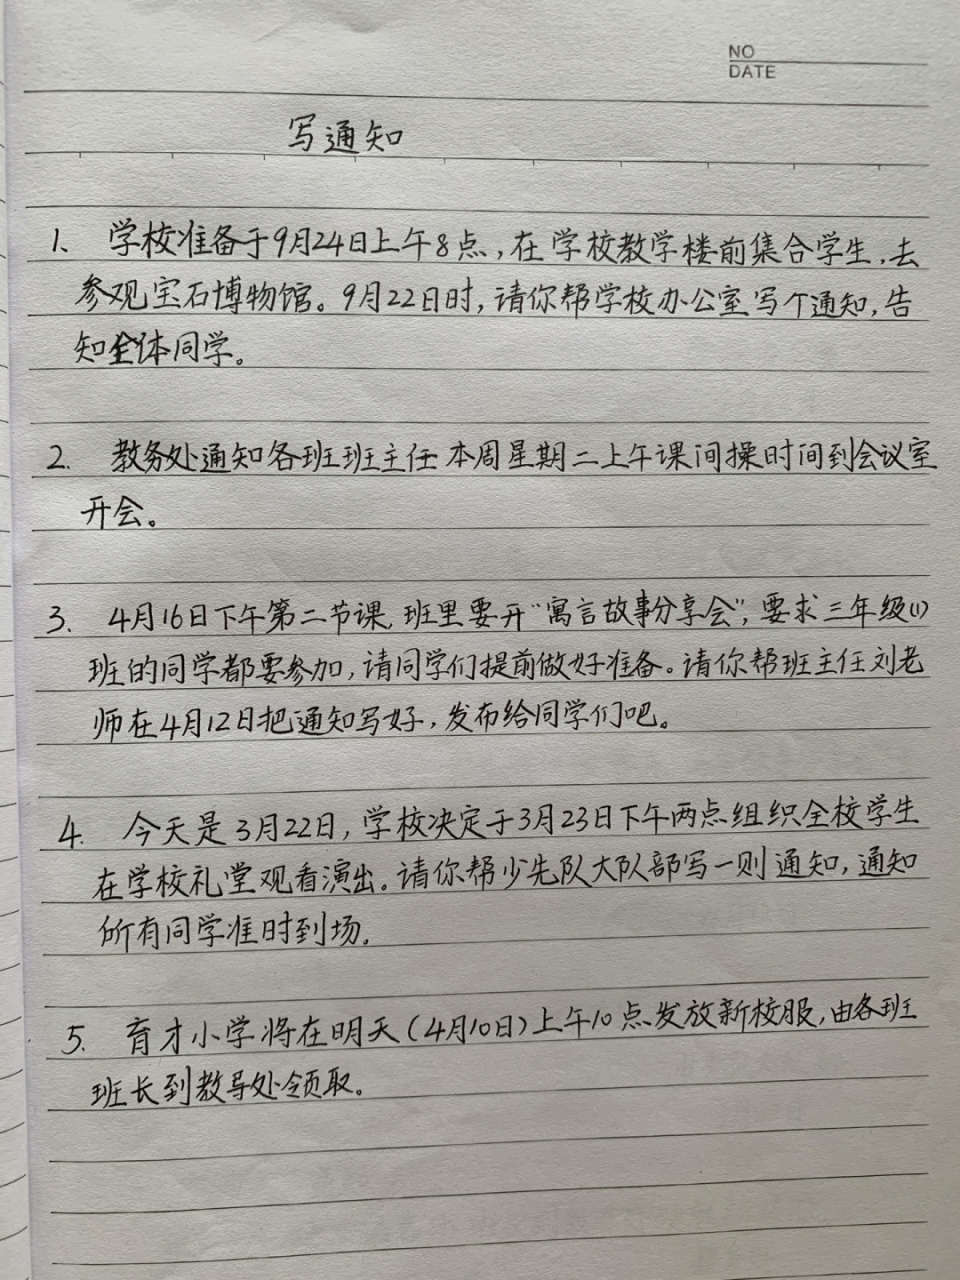 NO
DATE
写通知
1、学校准备于9月24日上午8点,在学校教学楼前集合学生,去
参观宝石博物馆。9月22日时,请你帮学校办公室写个通知,告
知全体同学。
2. 教务处通知各班班主任本周星期二上午课间操时间到会议室
开会。
3. 4月16日下午第二节课,班里要开“寓言故事分享会”,要求三年级(1)
班的同学都要参加,请同学们提前做好准备。请你帮班主任刘老
师在4月12日把通知写好,发布给同学们吧。
4. 今天是3月22日,学校决定于3月23日下午两点组织全校学生
在学校礼堂观看演出。请你帮少先队大队部写一则通知,通知
所有同学准时到场.
5. 育才小学将在明天(4月10日)上午10点发放新校服,由各班
班长到教导处领取。